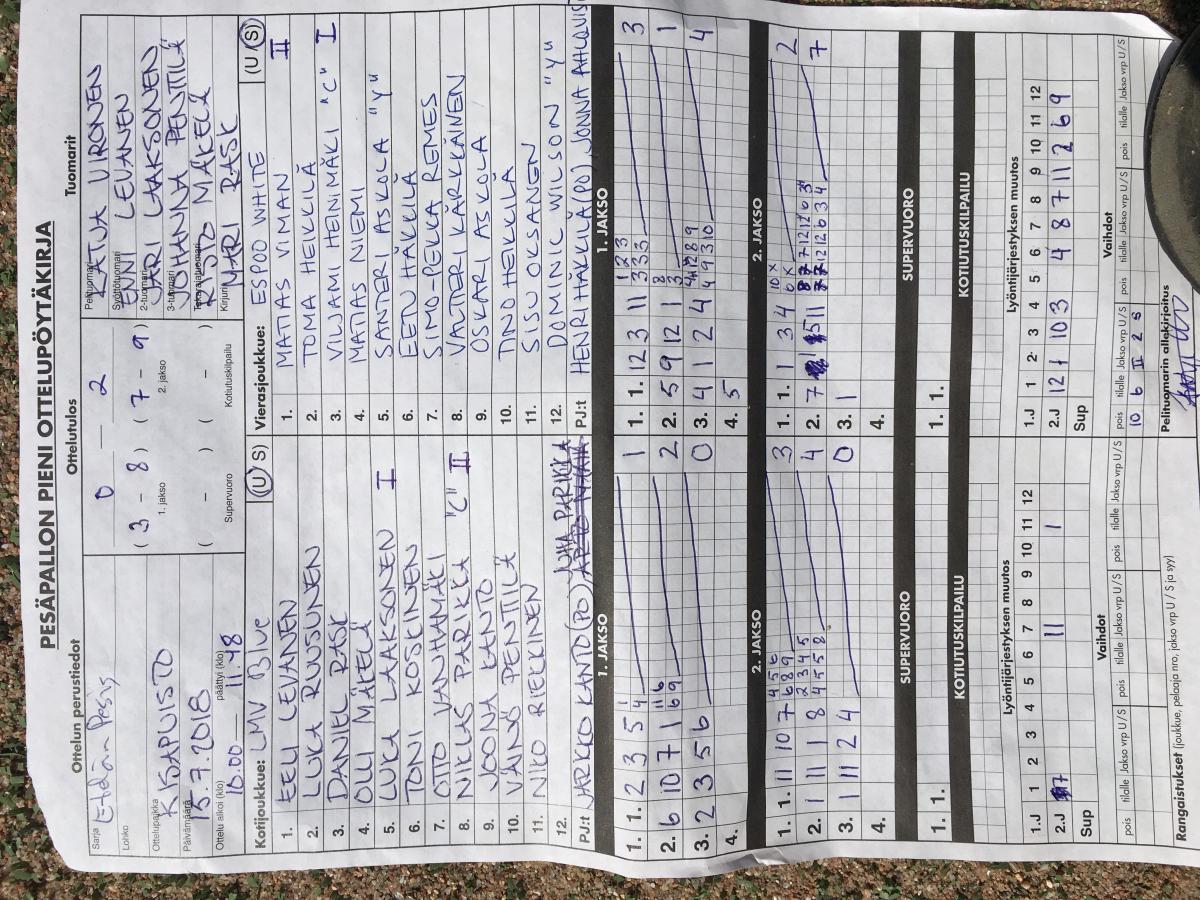 PESÄPALLON PIENI OTTELUPÖYTÄKIRJA
Ottelun perustiedot
Sarja Etelän Pesis
Lohko
Ottelupaikka KISAPUISTO
Päivämäärä 15.7.2018
Ottelu alkoi (klo) 10.00 päättyi (klo) 11.48
Ottelutulos
0 — 2
( 3 - 8 ) ( 7 - 9 )
1. jakso 2. jakso
( - ) ( - )
Supervuoro Kotiutuskilpailu
Tuomarit
Pelituomari KATJA VIRONEN
Syöttötuomari ENNI LEVANEN
2-tuomari JARI LAAKSONEN
3-tuomari JOHANNA PENTTILÄ
Takarajatuomari MÄKELÄ
Kirjuri MARI RASK
Kotijoukkue: LMV Blue (U S)
1. EELI LEVANEN
2. LUKA RUUSUNEN
3. DANIEL RASK
4. OLLI MÄKELÄ
5. LUKA LAAKSONEN I
6. TONI KOSKINEN
7. OTTO VANHAMÄKI
8. NIKLAS PARIKKA "C" II
9. JOONA KANTO
10. VÄINÖ PENTTILÄ
11. NIKO RIEKKINEN
12.
PJ:t JARKKO KANTO (PO) JUHA PARIKKA
Vierasjoukkue: ESPOO WHITE (U S)
1. MATIAS VIMAN II
2. TOMA HEIKKILÄ
3. VILJAMI HEINIMÄKI "C" I
4. MATIAS NIEMI
5. SANTERI ASKOLA "Y"
6. EETU HÄKKILÄ
7. SIMO-PEKKA REMES
8. VALTTERI KÄRKKÄINEN
9. OSKARI ASKOLA
10. TINO HEIKKILÄ
11. SISU OKSANEN
12. DOMINIC WILSON "Y"
PJ:t HENRI HÄKKILÄ (PO) JONNA AHLQVIST
1. JAKSO
1. 1. 2 3 5 1 4 1
2. 6 10 7 1 11 6 6 9 2
3. 2 3 5 6 0
4.
1. JAKSO
1. 1. 12 3 11 1 2 3 3 3 3 3
2. 5 9 12 1 1
3. 4 1 2 4 4
4. 5
2. JAKSO
1. 1. 11 10 7 4 5 6 6 8 9 3
2. 1 11 1 8 2 3 4 5 4 5 5 8 4
3. 1 11 2 4 0
4.
2. JAKSO
1. 1. 1 3 4 2
2. 7 5 11 7
3. 1
4.
SUPERVUORO
1. 1.
SUPERVUORO
1. 1.
KOTIUTUSKILPAILU
KOTIUTUSKILPAILU
Lyöntijärjestyksen muutos
1 2 3 4 5 6 7 8 9 10 11 12
1.J
2.J 7 11 1
Sup
Lyöntijärjestyksen muutos
1 2 3 4 5 6 7 8 9 10 11 12
1.J
2.J 12 1 10 3 4 8 7 11 2 6 9
Sup
Vaihdot
pois tilalle Jakso vrp U/S pois tilalle Jakso vrp U/S pois tilalle Jakso vrp U/S
Vaihdot
pois tilalle Jakso vrp U/S pois tilalle Jakso vrp U/S pois tilalle Jakso vrp U/S
10 6 II 2 S
Rangaistukset (joukkue, pelaaja nro, jakso, vrp U / S ja syy)
Pelituomarin allekirjoitus